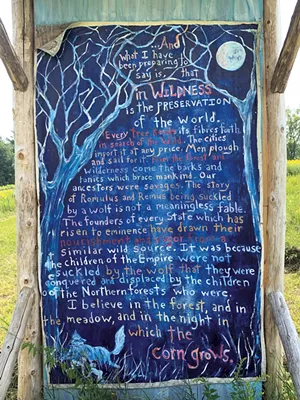 ...And
what I have
been preparing to
say is, that
in WILDNESS
is the PRESERVATION
of the World.
Every Tree sends its fibres forth
in search of the Wild. The cities
import it at any price. Men plough
and sail for it. From the forest and
Wilderness come the barks and
tonics which brace mankind. Our
ancestors were savages. The story
of Romulus and Remus being suckled
by a wolf is not a meaningless fable.
The founders of every State which has
risen to eminence have drawn their
nourishment and vigor from a
similar wild source. It was because
the children of the Empire were not
suckled by the wolf that they were
conquered and displaced by the children
of the Northern forests who were.
I believe in the forest, and in
the meadow, and in the night in
which the
corn grows.